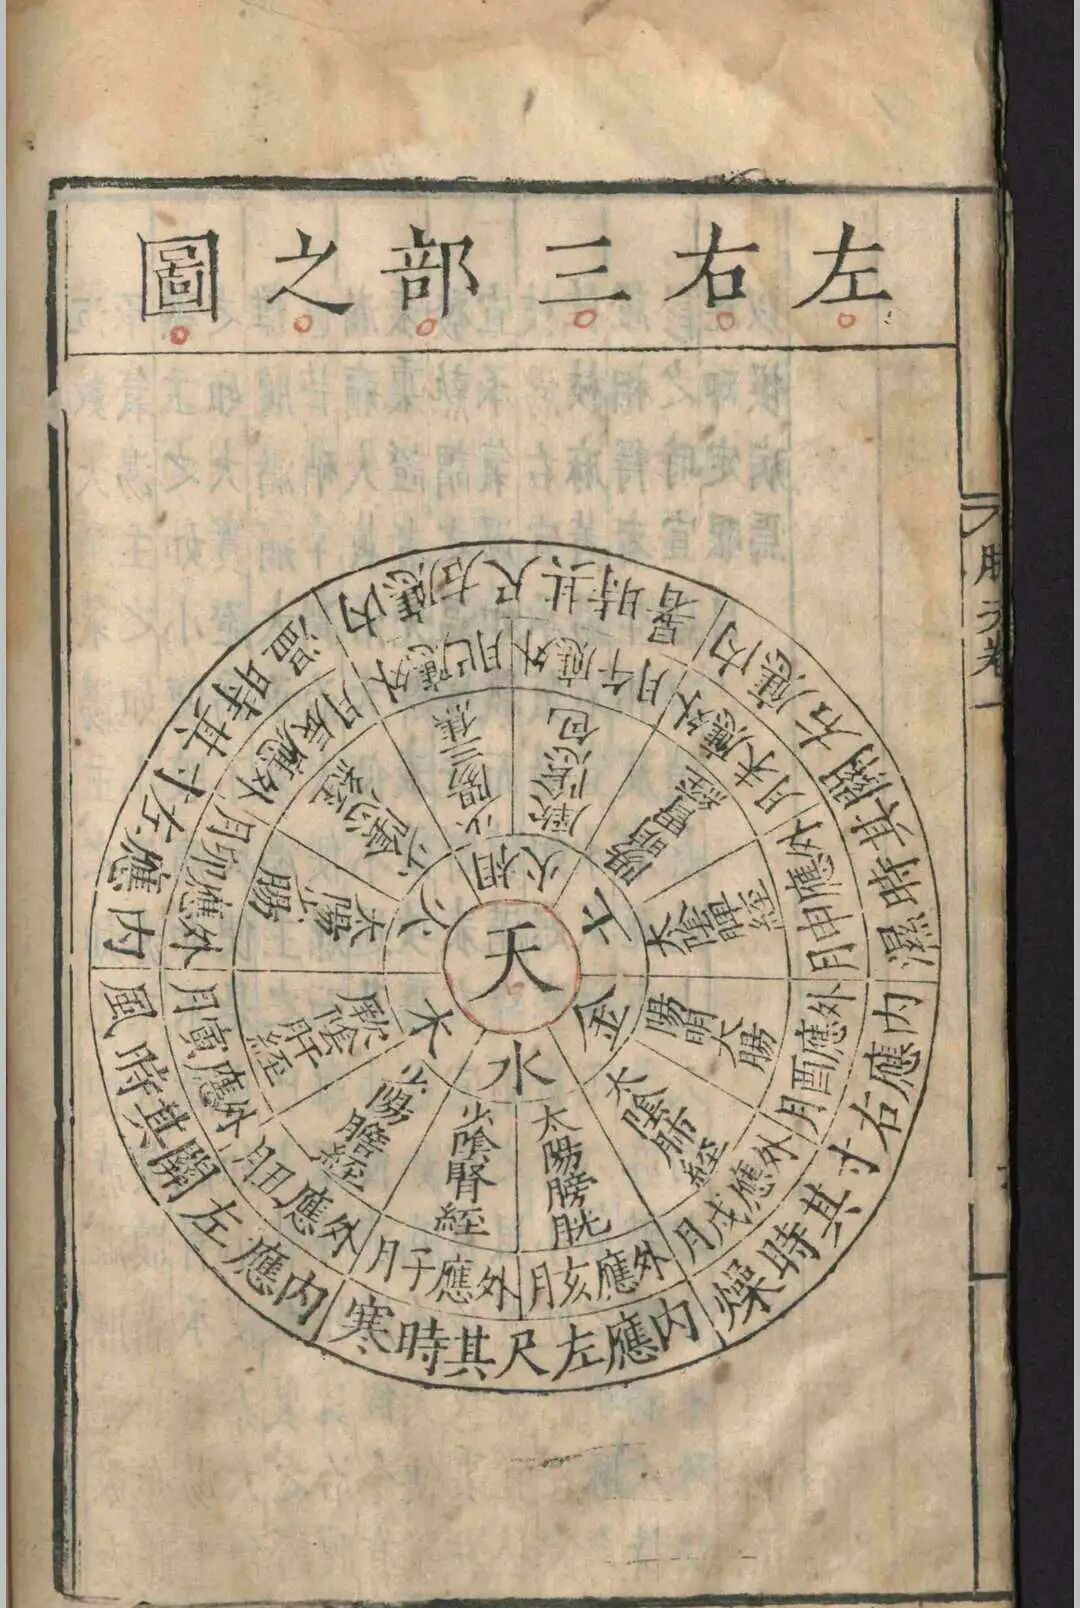 左右三部之圖
天
相火
土
金
水
木
火
厥隂包
陽明胃經
太隂脾經
陽明大腸
太隂肺經
太陽膀胱
少隂腎經
少陽膽經
厥隂肝經
太陽小腸
少隂心經
少陽三焦
外應午月
外應未月
外應申月
外應酉月
外應戌月
外應亥月
外應子月
外應丑月
外應寅月
外應卯月
外應辰月
外應巳月
内應右尺其時暑
内應右關其時濕
内應右寸其時燥
内應左尺其時寒
内應左關其時風
内應左寸其時温
卷一